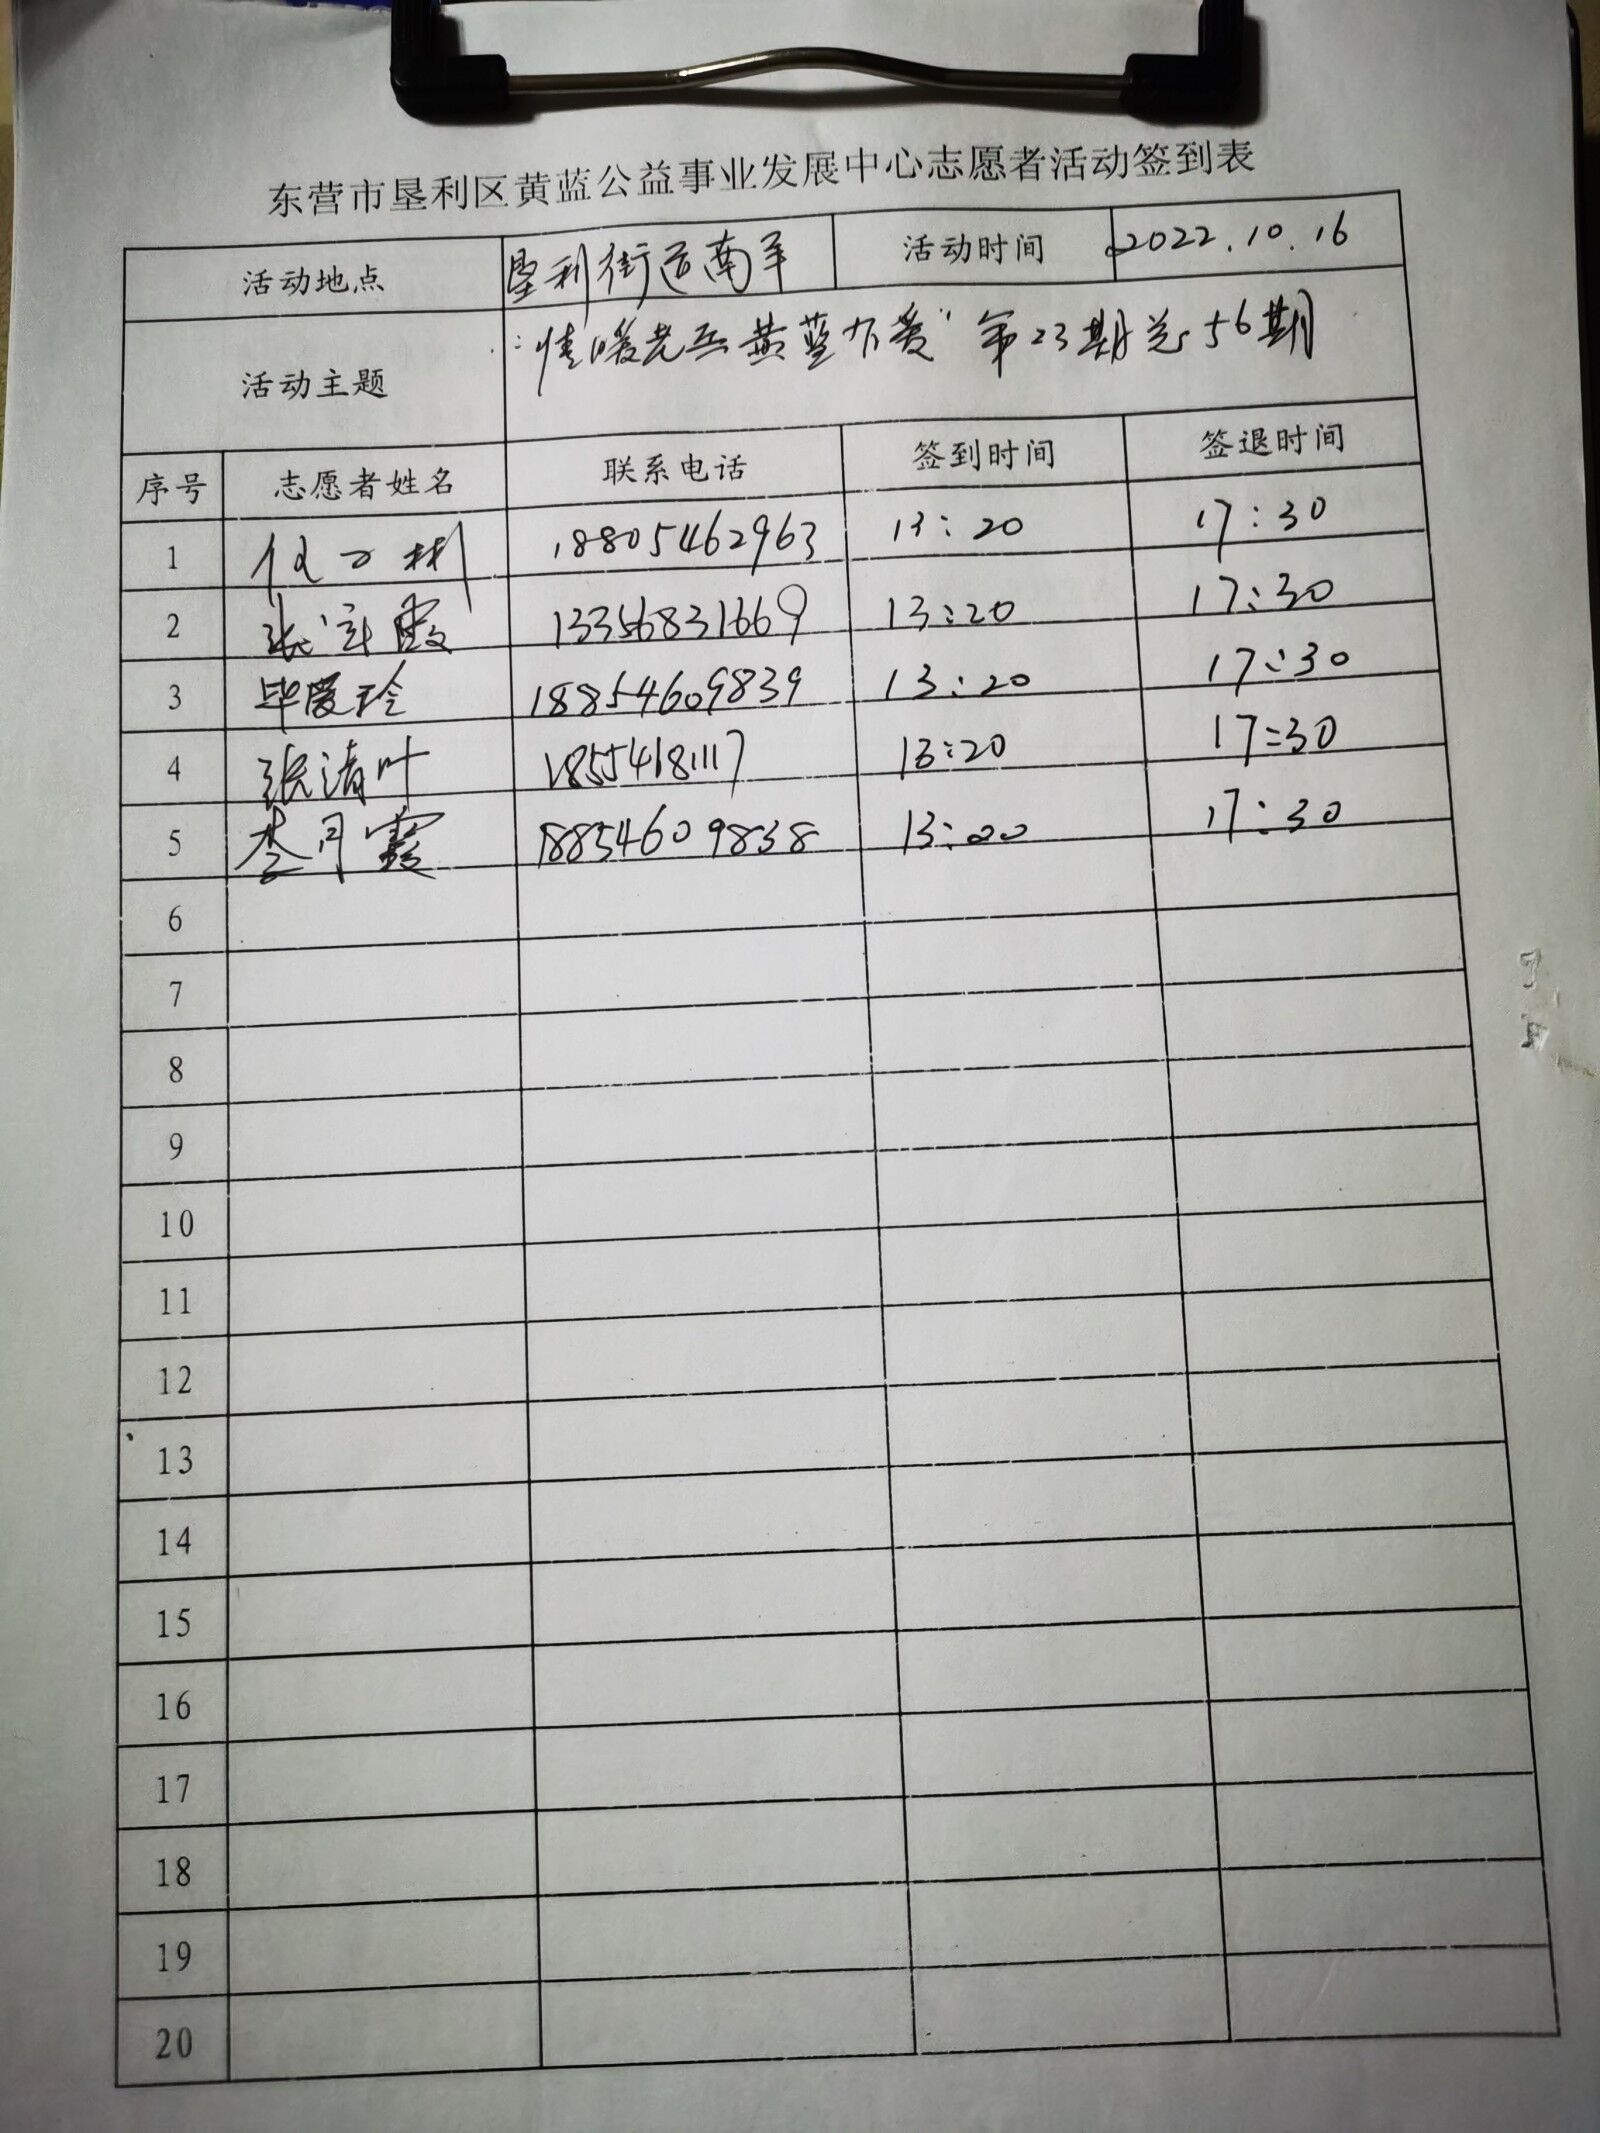 东营市垦利区黄蓝公益事业发展中心志愿者活动签到表
活动地点 垦利街道南羊 活动时间 2022.10.16
活动主题 “情暖老兵黄蓝有爱”第23期总56期
序号 志愿者姓名 联系电话 签到时间 签退时间
1 18805462963 13:20 17:30
2 张宝霞 13356831669 13:20 17:30
3 毕爱玲 18854609839 13:20 17:30
4 张清叶 18554181117 13:20 17:30
5 李月霞 18854609838 13:20 17:30
6
7
8
9
10
11
12
13
14
15
16
17
18
19
20